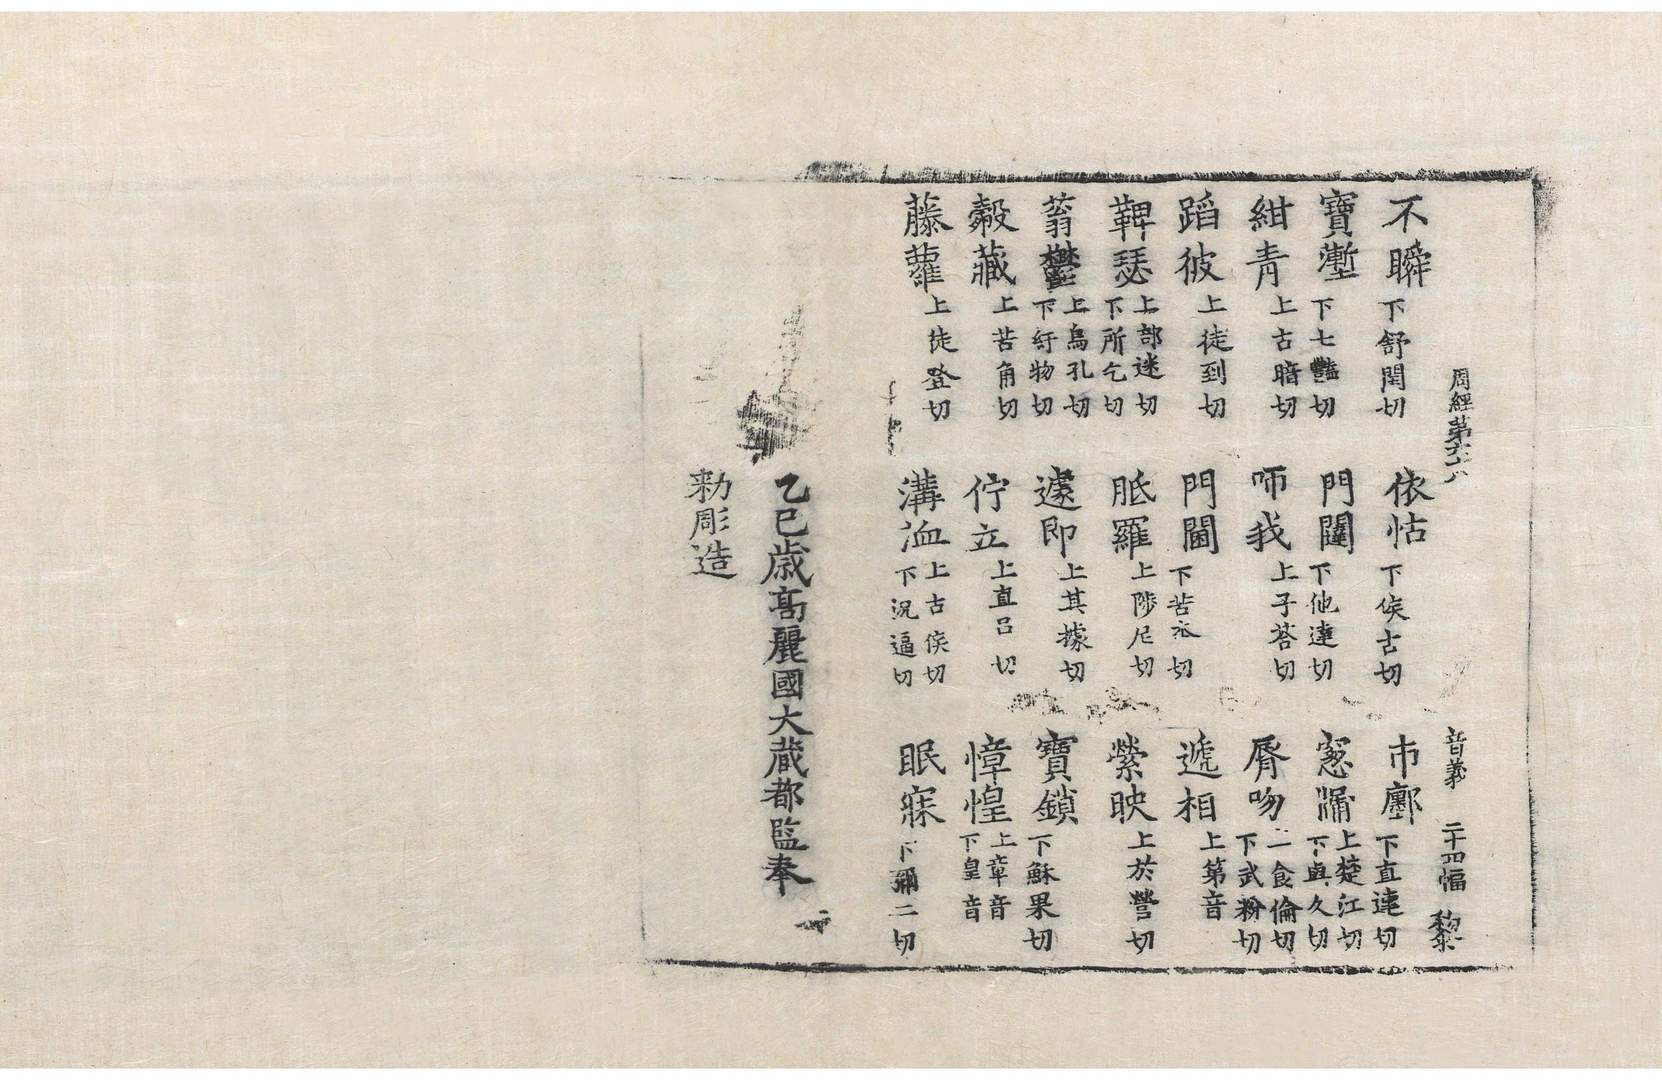 周經第六十八 音義 二十四幅 黎
不瞬下舒閏切 依怙下侯古切 市廛下直連切
寶壍下七豔切 門闥下他達切 窓牖上楚江切下與久切
紺青上古暗切 咂我上子荅切 脣吻食倫切下武粉切
蹈彼上徒到切 門閫下苦本切 遞相上第音
鞞瑟上部迷切下所乞切 胝羅上陟尼切 縈映上於營切
蓊鬱上烏孔切下紆物切 遽即上其據切 寶鎖下蘇果切
㲉藏上苦角切 佇立上直呂切 慞惶上章音下皇音
藤蘿上徒登切 溝洫上古侯切下況逼切 眠寐下彌二切
乙巳歳高麗國大藏都監奉
勑彫造